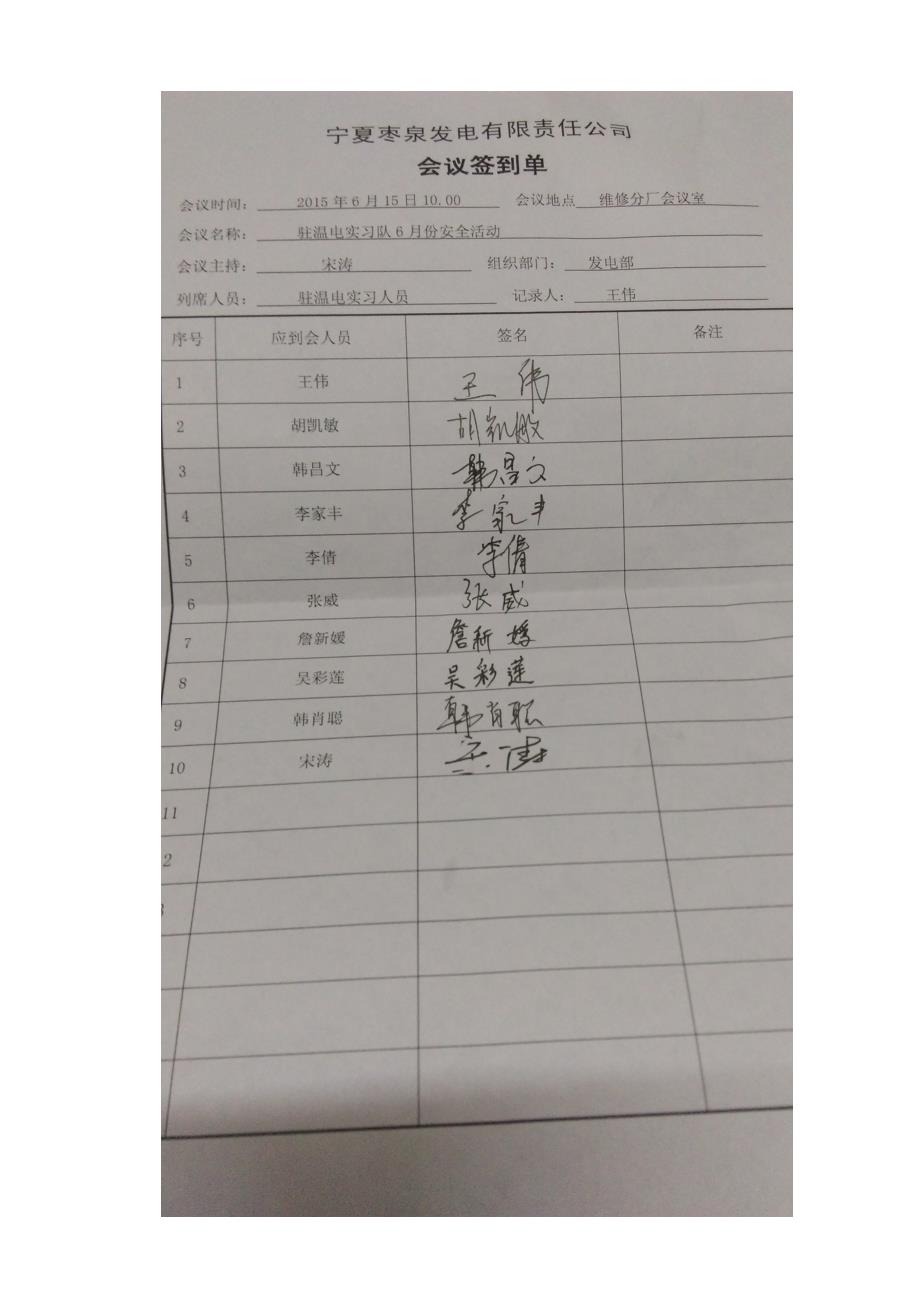 宁夏枣泉发电有限责任公司
会议签到单
会议时间: 2015年6月15日10.00 会议地点 维修分厂会议室
会议名称: 驻温电实习队6月份安全活动
会议主持: 宋涛 组织部门: 发电部
列席人员: 驻温电实习人员 记录人: 王伟
序号 应到会人员 签名 备注
1 王伟 王伟
2 胡凯敏 胡凯敏
3 韩昌文 韩昌文
4 李家丰 李家丰
5 李倩 李倩
6 张威 张威
7 詹新媛 詹新媛
8 吴彩莲 吴彩莲
9 韩肖聪 韩肖聪
10 宋涛 宋涛
11
2
3